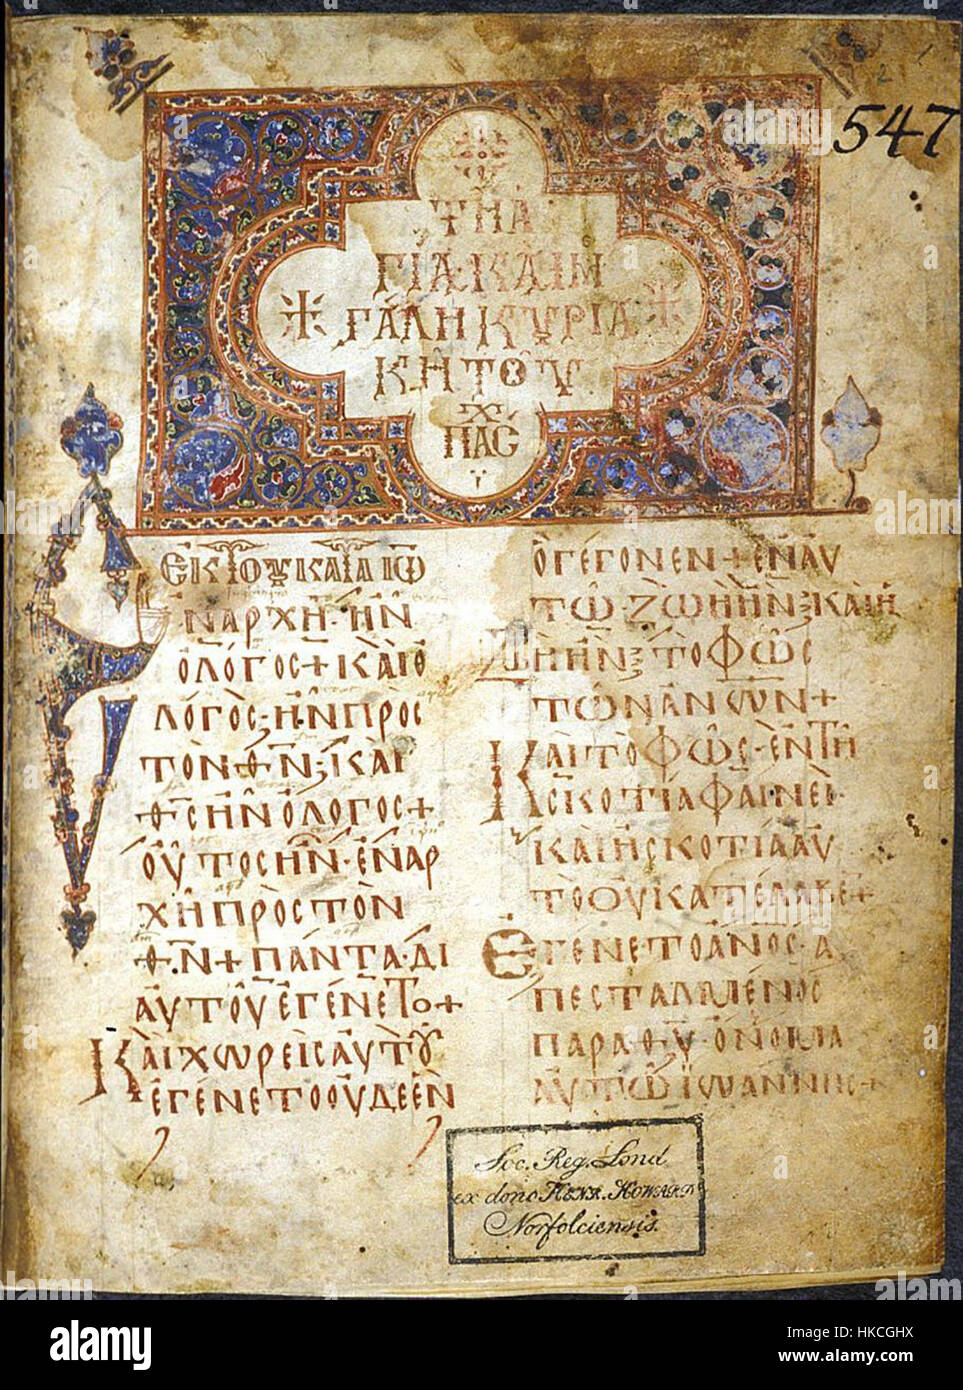 547
ΤΗ ἉΓΙΑ ΚΑΙ Μ
ΓΑΛΗ ΚΥΡΙΑ
ΚΗ ΤΟΥ
ΠΑϹ
ΕΚ ΤΟΥ ΚΑΤΑ ΙΩ
ΝΑΡΧΗ ΗΝ
Ο ΛΟΓΟϹ + ΚΑΙ Ο
ΛΟΓΟϹ ΗΝ ΠΡΟϹ
ΤΟΝ ΘΝ ΚΑΙ
ΘϹ ΗΝ Ο ΛΟΓΟϹ +
ΟΥΤΟϹ ΗΝ ΕΝ ΑΡ
ΧΗ ΠΡΟϹ ΤΟΝ
ΘΝ + ΠΑΝΤΑ ΔΙ
ΑΥΤΟΥ ΕΓΕΝΕΤΟ +
ΚΑΙ ΧΩΡΕΙϹ ΑΥΤΟΥ
ΕΓΕΝΕΤΟ ΟΥΔΕ ΕΝ
Ο ΓΕΓΟΝΕΝ + ΕΝ ΑΥ
ΤΩ ΖΩΗ ΗΝ ΚΑΙ Η
ΖΩΗ ΗΝ ΤΟ ΦΩϹ
ΤΩΝ ΑΝΩΝ +
ΚΑΙ ΤΟ ΦΩϹ ΕΝ ΤΗ
ϹΚΟΤΙΑ ΦΑΙΝΕΙ
ΚΑΙ Η ϹΚΟΤΙΑ ΑΥ
ΤΟ ΟΥ ΚΑΤΕΛΑΒΕ +
ΕΓΕΝΕΤΟ ΑΝΟϹ Α
ΠΕϹΤΑΛΜΕΝΟϹ
ΠΑΡΑ ΘΥ ΟΝΟΜΑ
ΑΥΤΩ ΪΩΑΝΝΗϹ +
Soc. Reg. Lond
ex dono HENR. HOWARD
Norfolciensis.
alamy
Image ID: HKCGHX
www.alamy.com